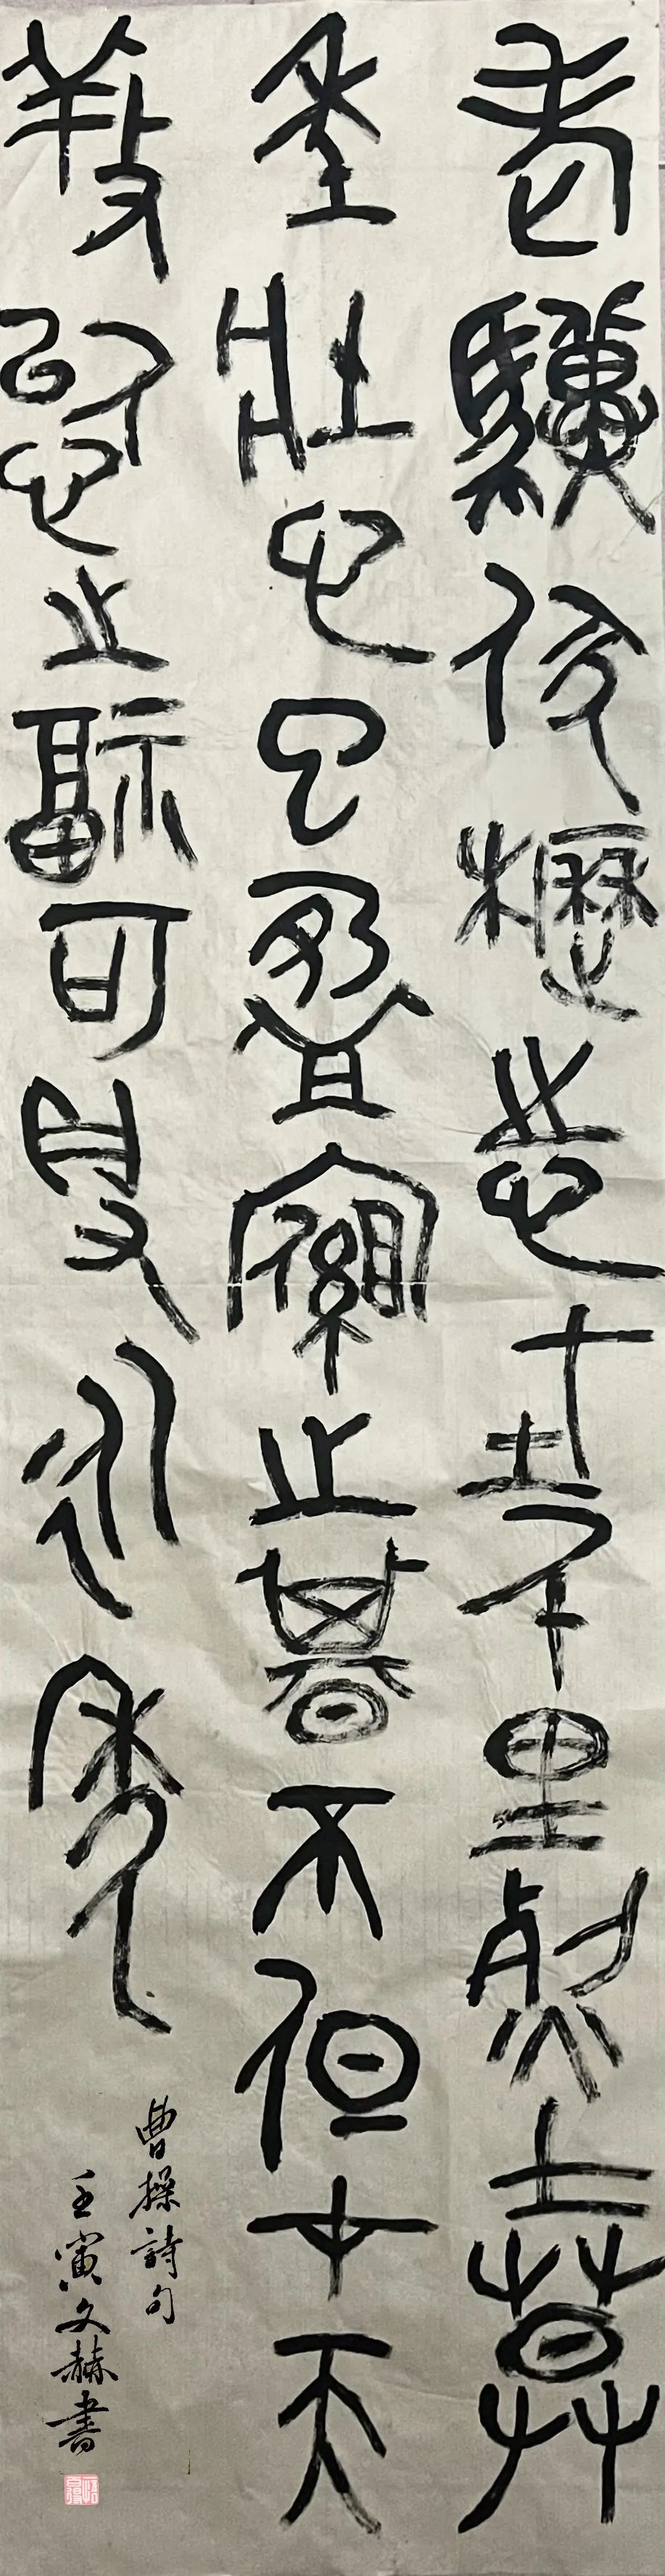 老驥伏櫪志在千里烈士暮
年壯心已盈縮之期不但在天
養怡之福可得永年
曹操詩句
壬寅文赫書